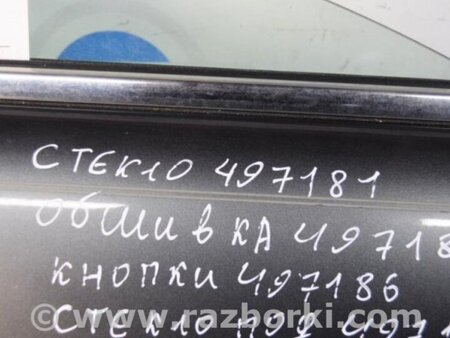 СТЕКЛО 497181
ОБШИВКА 49718
КНОПКИ 497186
СТЕКЛО 497
© www.razborki.com